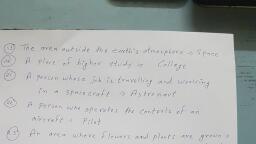 The area outside the earth's atmosphere → Space
A place of higher study → College
A person whose job is travelling and working
in a spacecraft → Astronaut
A person who operates the controls of an
aircraft → Pilot
An area where flowers and plants are grown →